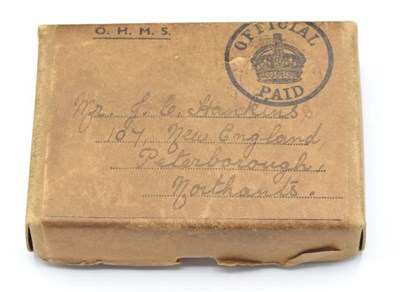 O. H. M. S.
OFFICIAL
PAID
Mr. J. C. Hawkins
107, New England,
Peterborough,
Northants.